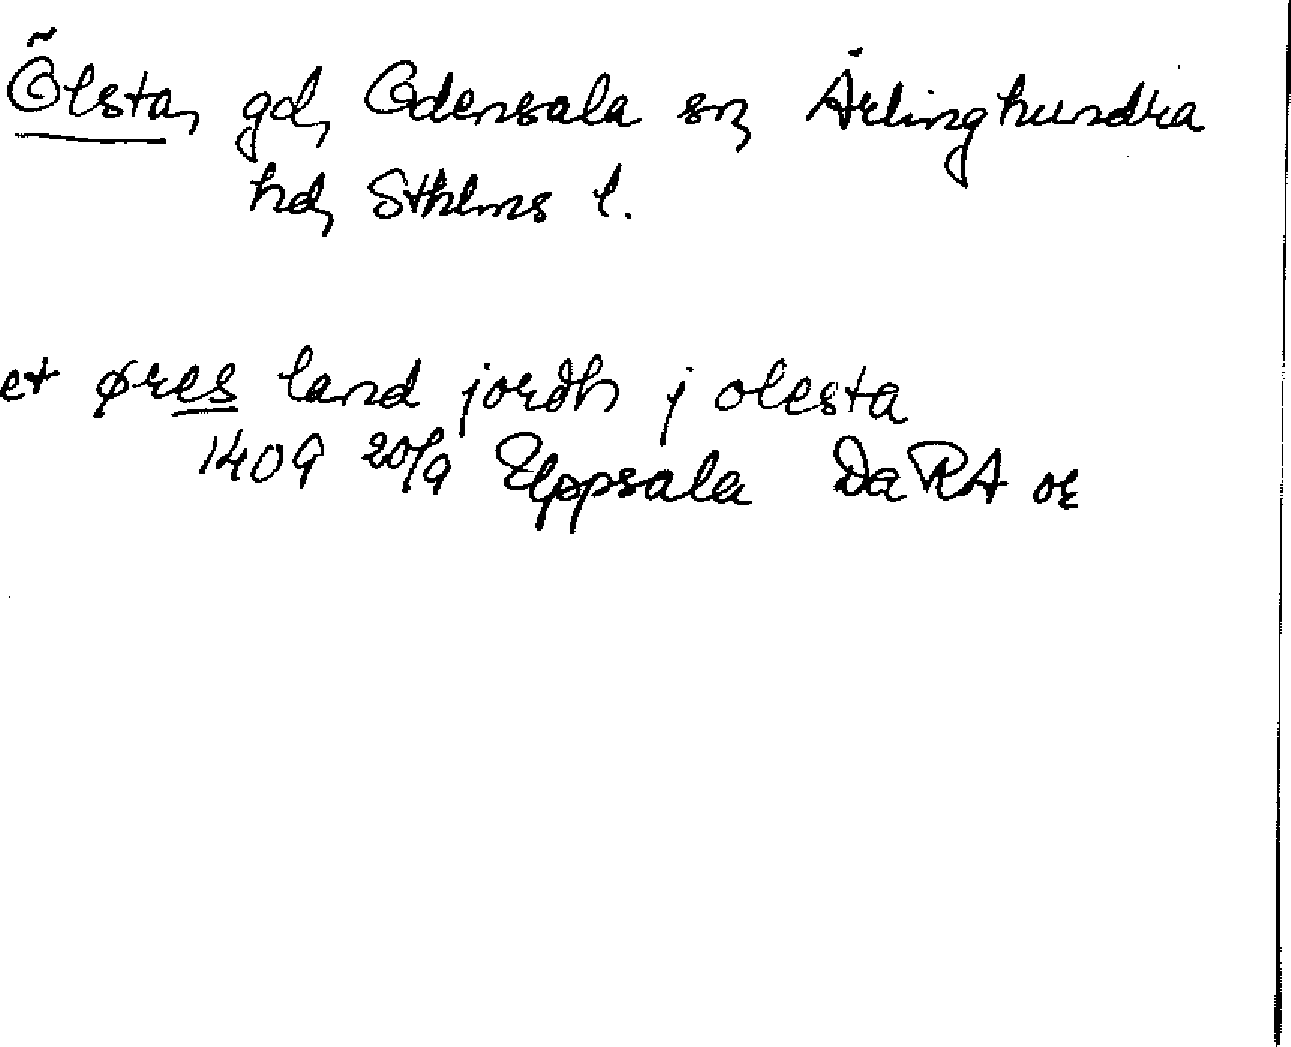 Ölsta, gd, Odensala sn, Ärlinghundra
hd, Sthlms l.
et øres land jordh j olesta
1409 20/9 Uppsala DaRA or